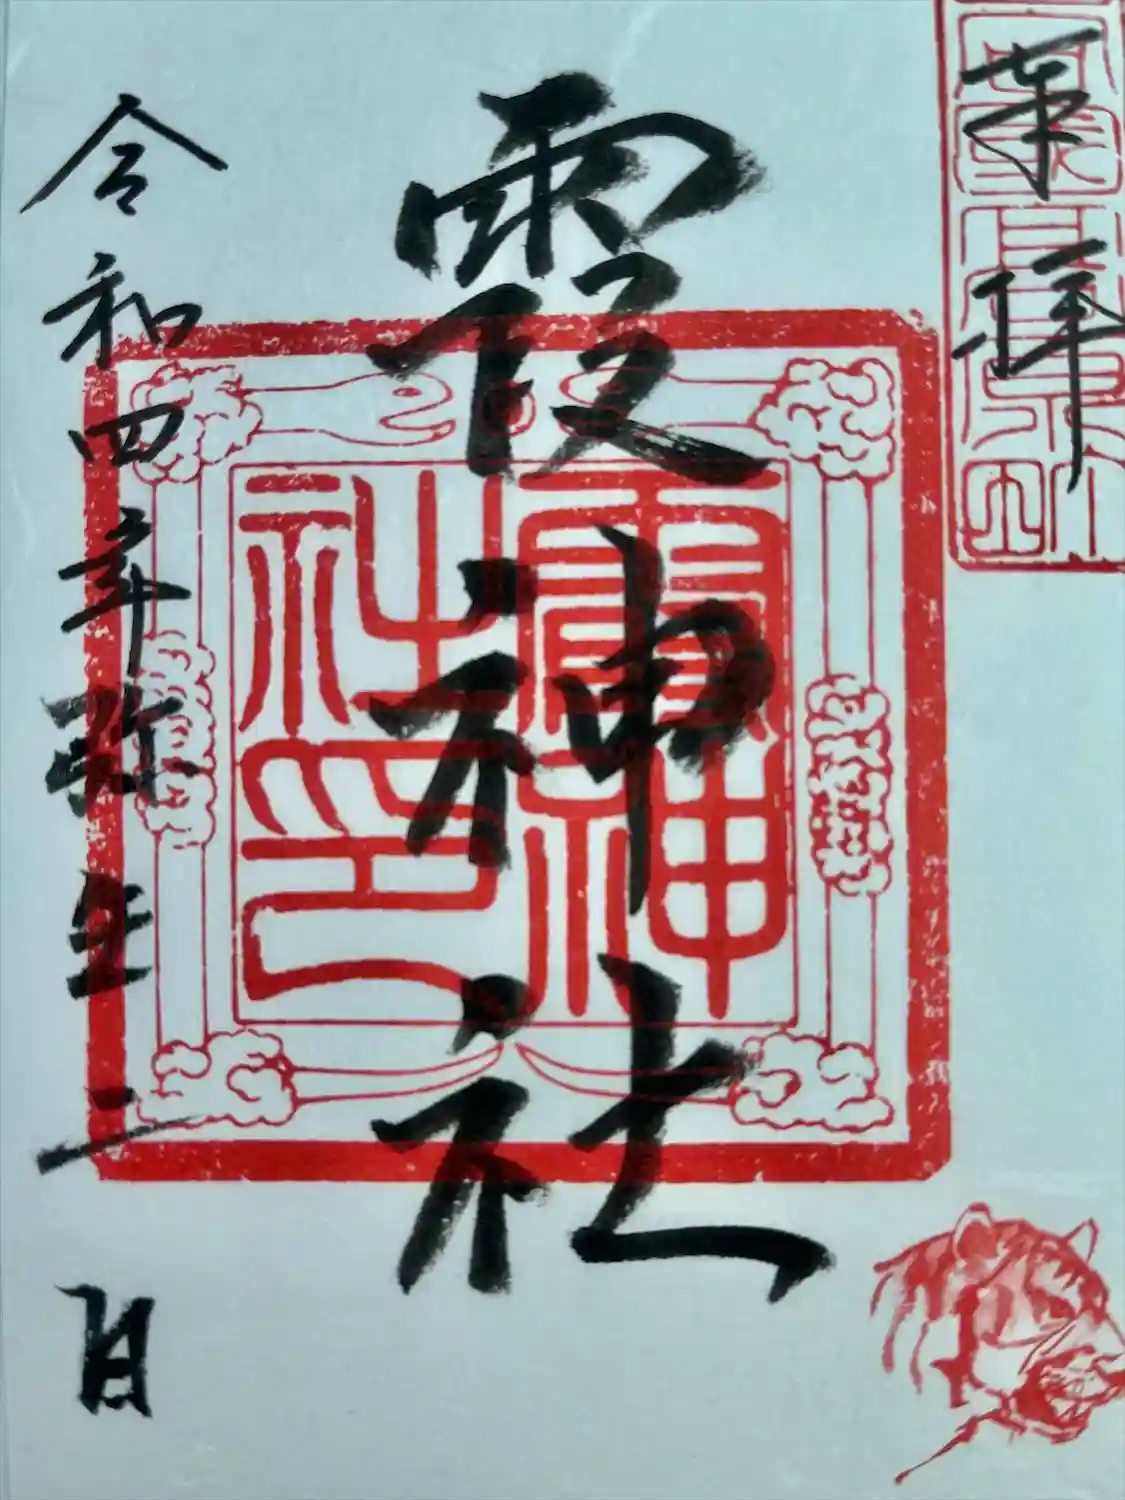 奉拝
霞神社
霞神
社印
令和四年弥生二日